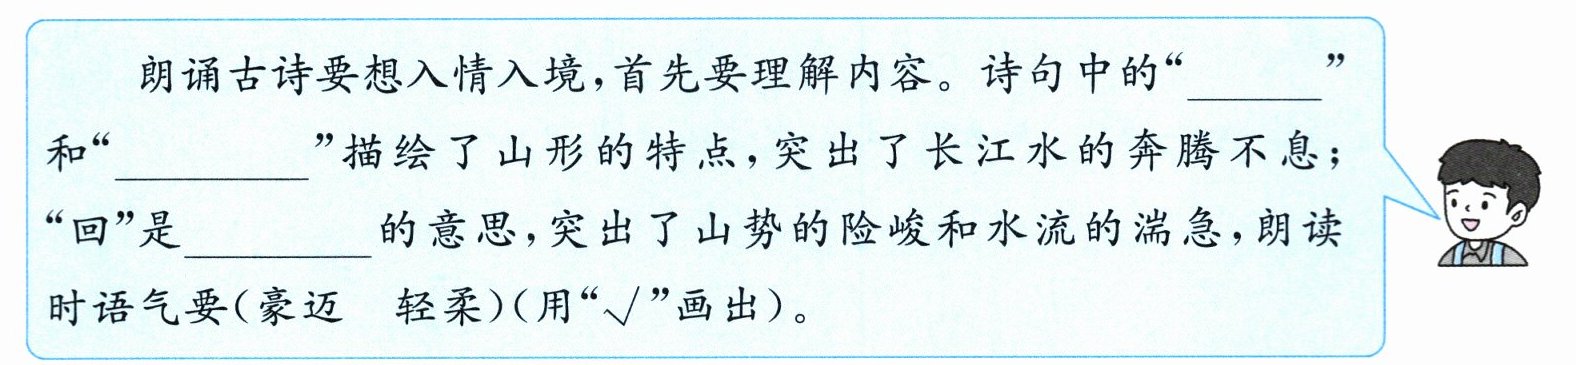 朗诵古诗要想入情入境,首先要理解内容。诗句中的“______”
和“________”描绘了山形的特点,突出了长江水的奔腾不息;
“回”是________的意思,突出了山势的险峻和水流的湍急,朗读
时语气要(豪迈 轻柔)(用“√”画出)。